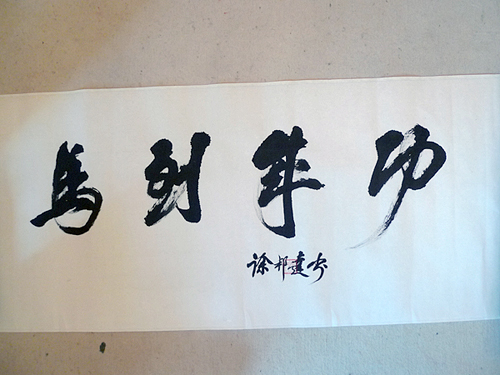 馬到成功
徐邦達书